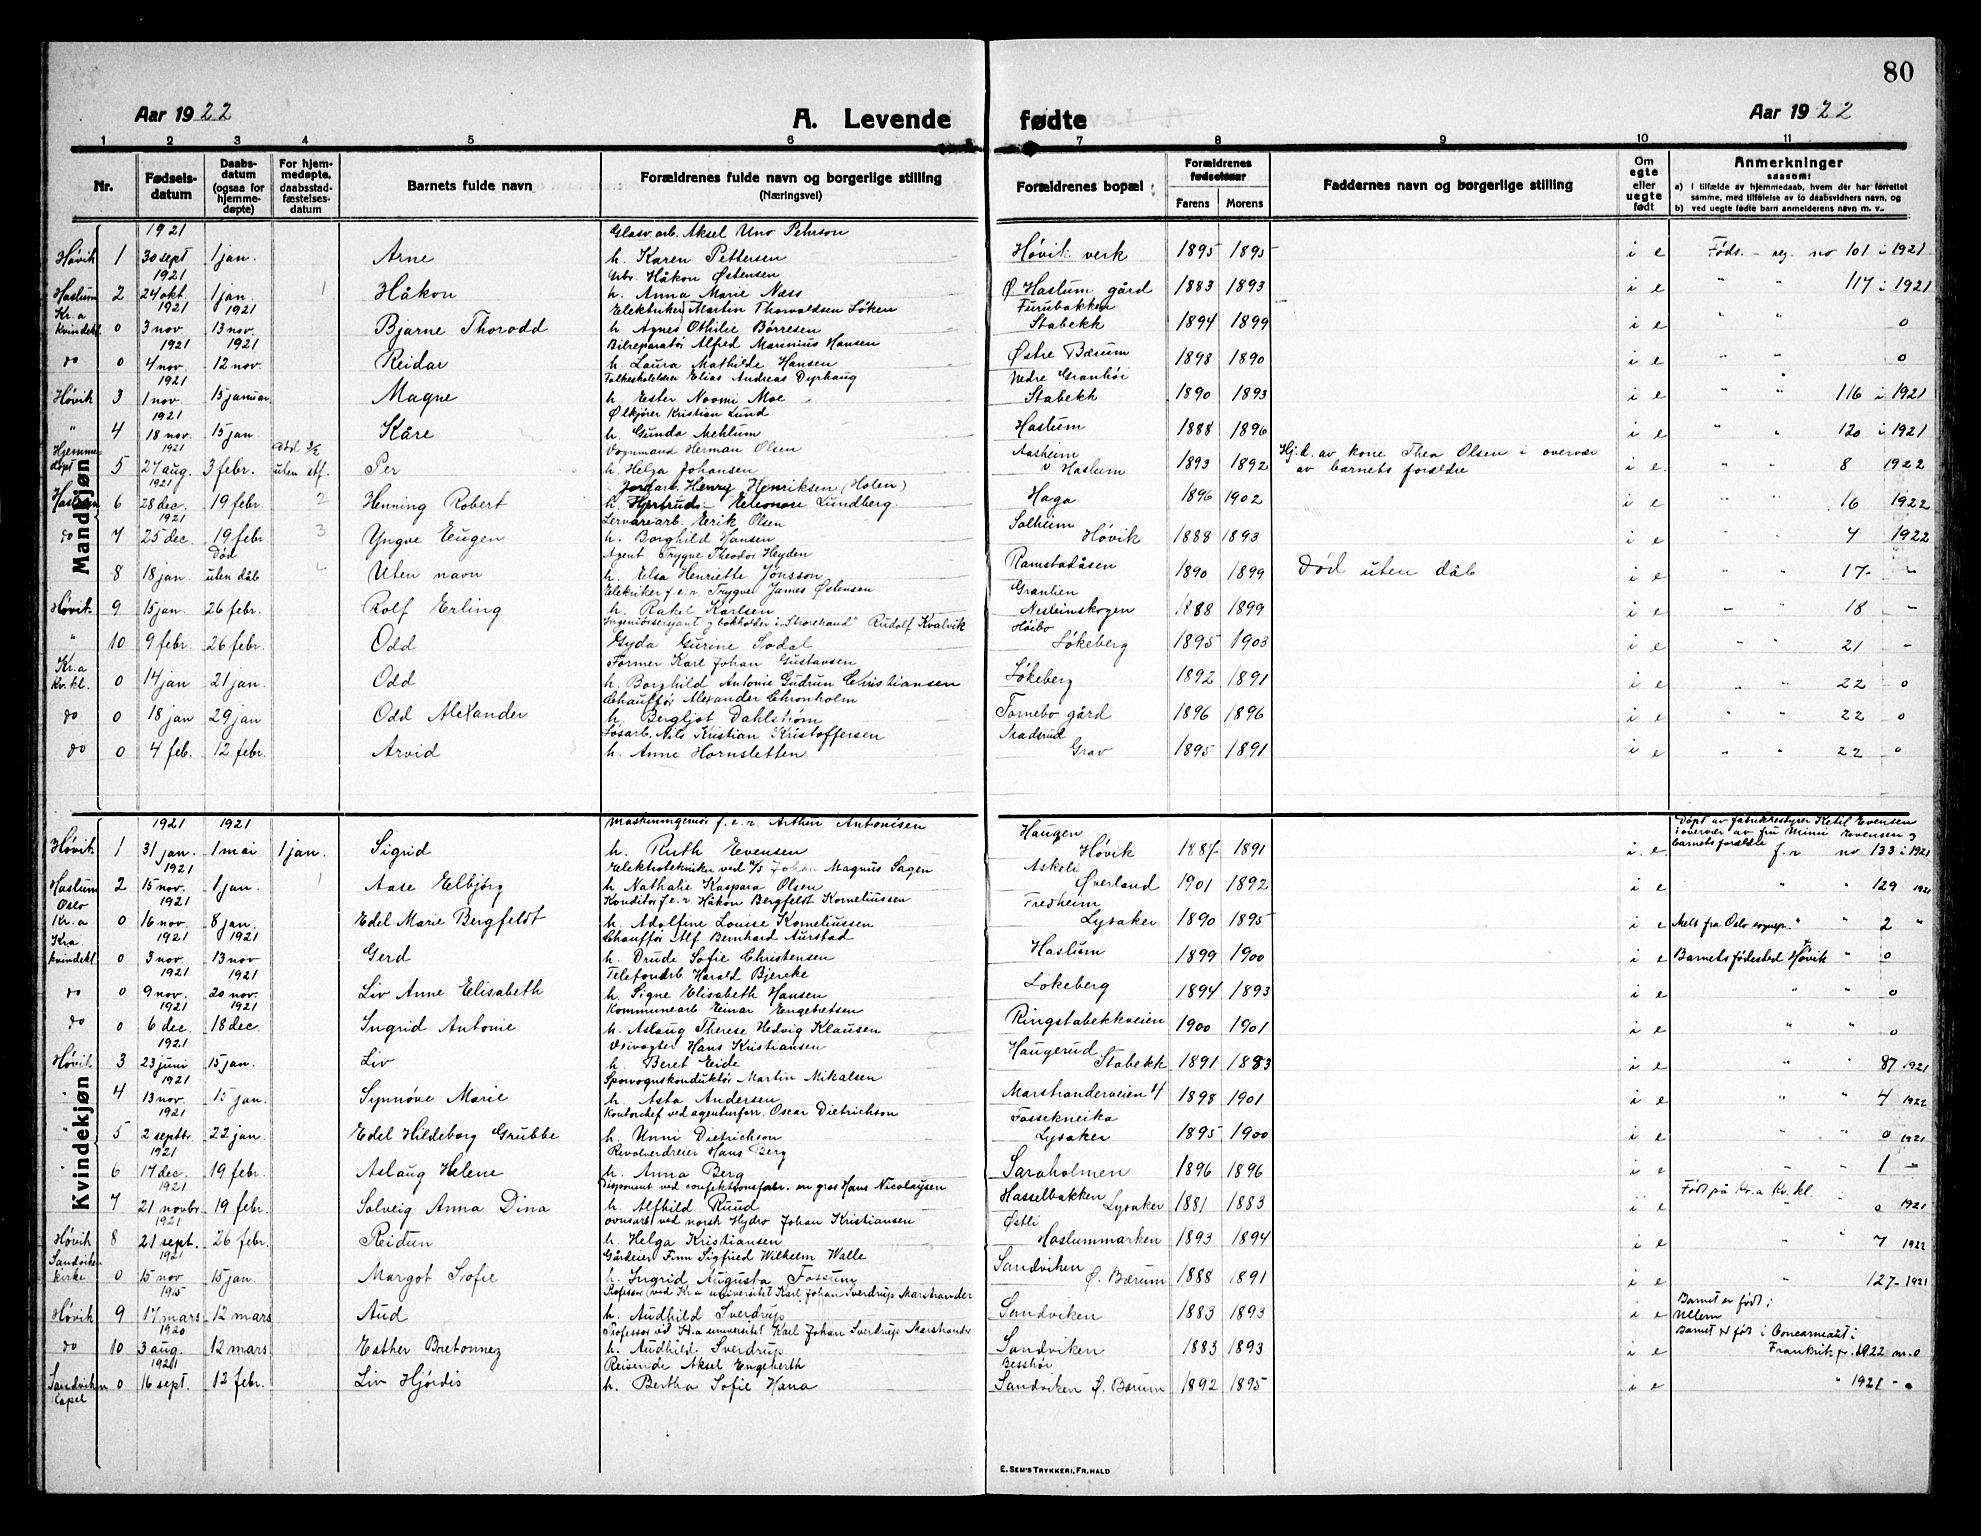 80
Aar 1922 A. Levende fødte Aar 1922
1 2 3 4 5 6 7 8 9 10 11
Nr. Fødsels-datum Daabs-datum (ogsaa for hjemme-døpte) For hjem-medøpte, daabsstad-fæstelses-datum Barnets fulde navn Forældrenes fulde navn og borgerlige stilling (Næringsvei) Forældrenes bopæl Forældrenes fødselsaar Farens Morens Faddernes navn og borgerlige stilling Om egte eller uegte født Anmerkninger saasom:
a) i tilfælde av hjemmedaab, hvem der har forrettet samme, med tilføielse av to daabsvidners navn, og
b) ved uegte fødte barn anmelderens navn m. v.
Mandkjøn
1921 Glasv. arb. Aksel Uno Pehrson
Høvik 1 30 sept 1 jan. Arne h. Karen Pettersen Høvik verk 1895 1895 i e Føds.-reg. no 101 i 1921
1921 Håkon Østensen
Haslum 2 24 okt. 1 jan 1 Håkon h. Anna Marie Næss Ø. Haslum gård 1883 1893 i e " " 117 i 1921
Kr.a 1921 1921 Elektriker Martin Thorvaldsen Løken Furubakken
Kvindekl 0 3 nov. 13 nov. Bjarne Thorodd h. Agnes Othilie Børresen Stabekk 1894 1899 i e " " 0
1921 1921 Bilreparatør Alfred Marinius Hansen
do 0 4 nov. 12 nov. Reidar h. Laura Mathilde Hansen Østre Bærum 1898 1890 i e " " 0
1921 Elias Andreas Dyrhaug Nedre Granhøi
Høvik 3 1 nov. 15 januar Magne h. Ester Noomi Moe Stabekk 1890 1893 i e " " 116 i 1921
1921 Ølkjører Kristian Lund
" 4 18 nov. 15 jan Kåre h. Gunda Mehlum Haslum 1888 1896 i e " " 120 i 1921
Hjemme 1921 død Vognmand Herman Olsen Aasheim
døpt 5 27 aug. 3 febr. uten stf. Per h. Helga Johansen v Haslum 1893 1892 Hj. d. av kone Thea Olsen i overvær av barnets forældre i e " " 8 1922
1921 Jordarb. Henry Henriksen (Holen)
Haslum 6 28 dec. 19 febr. 2 Henning Robert h. Hjertruds Eleonore Lundberg. Haga 1896 1902 i e " " 16 1922
1921 Eerik Olsen Solheim
do 7 25 dec. 19 febr. 3 Yngve Eugen h. Borghild Hansen Høvik 1888 1893 i e " " 4 1922
Død Agent Trygve Theodor Heyden
8 18 jan uten dåb Uten navn h. Elsa Henriette Jonsson Ramstadåsen 1890 1899 Død uten dåb i e " 17 - "
Elektriker f.e.r. Trygve James Østensen Granlien
Høvik 9 15 jan. 26 febr. Rolf Erling h. Rakel Karlsen Nesteinskogen 1888 1899 i e " " 18 "
bokholder i "Storebrand" Rudolf Kvalvik Høibo
" 10 9 febr. 26 febr. Odd Gyda Gurine Sødal Løkeberg 1895 1903 i e " " 21 "
Kr.a Former Karl Johan Gustavsen
Kv. kl. 0 14 jan 21 jan. Odd h. Borghild Antonie Gudrun Christiansen Løkeberg 1892 1891 i e " " 22 0
Chauffør Alexander Chronholm
do 0 18 jan 29 jan Odd Alexander h. Bergljot Dahlstrøm Fornebo gård 1896 1896 i e " " 22 0
Løsarb. Nils Kristian Kristoffersen
do 0 4 feb. 12 febr. Arvid h. Anne Hornsletten Grav 1895 1891 i e " " 22 0
Kvindekjøn
1921 1921 Maskiningeniør f.e.r. Arthur Antonisen Haugen Døpt av fabrikkestyrer Ketil Evensen
i overvær av fru Mimi Evensen og
Høvik 1 31 jan. 1 mai 1 jan. Sigrid h. Ruth Evensen Høvik 1887 1891 i e barnets forældre f.r no 133 i 1921
1921 Elektrotekniker ved Johan Magnus Sagen Askeli
Haslum 2 15 nov. 1 jan. 1 Aase Elbjørg h. Nathalie Kaspara Olsen Øverland 1901 1892 i e " " 129 1921
Oslo 1921 Konditor f.e.r. Håkon Bergfeldt Korneliussen Fredheim
Kr.a 0 16 nov. 8 jan. Edel Marie Bergfeldt h. Adolfine Louise Korneliussen Lysaker 1890 1895 i e Meld. fra Oslo sognep. " " 2 "
Kra. 1921 1921 Chauffør Alf Bernhard Aurstad
Kvindekl 0 3 nov. 13 nov Gerd h. Drude Sofie Christensen Haslum 1899 1900 i e Barnets fødested Høvik " 0
1921 1921 Telefonarb. Harald Bjercke
do 0 9 nov. 20 nov. Liv Anne Elisabeth h. Signe Elisabeth Hansen Løkeberg 1894 1893 i e " " 0
1921 1921 Kommunearb Einar Engebretsen
do 0 6 dec. 18 dec. Ingrid Antonie h. Aslaug Therese Hedvig Klausen Ringstabekkveien 1900 1901 i e " " 0
1921 Veivogter Hans Kristiansen
Høvik 3 23 juni 15 jan. Liv h. Beret Eide Haugerud. Stabekk 1891 1883 i e " " 87 1921
1921 Sporvognskonduktør Martin Mikalsen
" 4 13 nov. 15 jan. Synnøve Marie h. Asta Andersen Marstranderveien 4 1898 1901 i e " " 4 1922
1921 Kontorchef ved agenturforr. Oscar Dietrichson Fossekneika
" 5 2 septbr. 22 jan. Edel Hildeborg Grubbe h. Unni Dietrichson Lysaker 1895 1900 i e " " 0 1921
1921 Revolverdreier Hans Berg
" 6 17 dec. 19 febr. Aslaug Helene h. Anna Berg Saraholmen 1896 1896 i e " " 1 -
1921 Disponent ved confektionsfabr. en gros Hans Nicolaysen Hasselbakken Født på Kr.a Kv. kl.
7 21 novbr. 19 febr. Solveig Anna Dina h. Alfhild Ruud Lysaker 1881 1883 i e " 0 1921
1921 ovnsarb ved norsk Hydro Johan Kristiansen Østli
Høvik 8 21 sept. 26 febr. Reidun h. Helga Kristiansen Haslummarken 1893 1894 i e " " 7 1922
Sandviken 1921 Gårdeier Finn Sigfried Wilhelm Walle Sandviken
kirke 0 15 nov 15 jan. Margot Sofie h. Ingrid Augusta Fossum Ø. Bærum 1888 1891 i e " " 127 - 1921
1915 Professor ved Kr.a universitet Karl Johan Sverdrup Marstrander Barnet er født i
Høvik 9 17 mars 12 mars Aud h. Audhild Sverdrup Sandviken 1883 1893 i e Ullern
1920 Professor ved Kr.a universitet Karl Johan Sverdrup Marstrander Barnet er født i Concarneaut i
do 10 3 aug. 12 mars Esther Bretonnez h. Audhild Sverdrup Sandviken 1883 1893 i e Frankrik f.r. 1922 no 0
1921 Reisende Aksel Engeberth Besshør
Sandviken 0 16 sept. 12 febr. Liv Hjørdis h. Bertha Sofie Hana Sandviken Ø. Bærum 1892 1895 i e " 1921 - 0
Capel
E. SEM'S TRYKKERI, FR.HALD